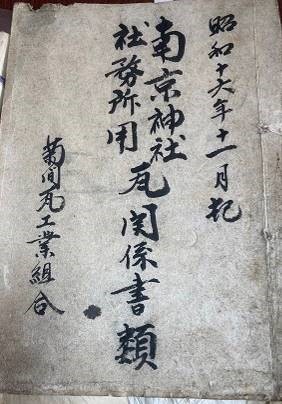 昭和十六年十一月起
南京神社
社務所用
瓦関係書類
菊間瓦工業組合